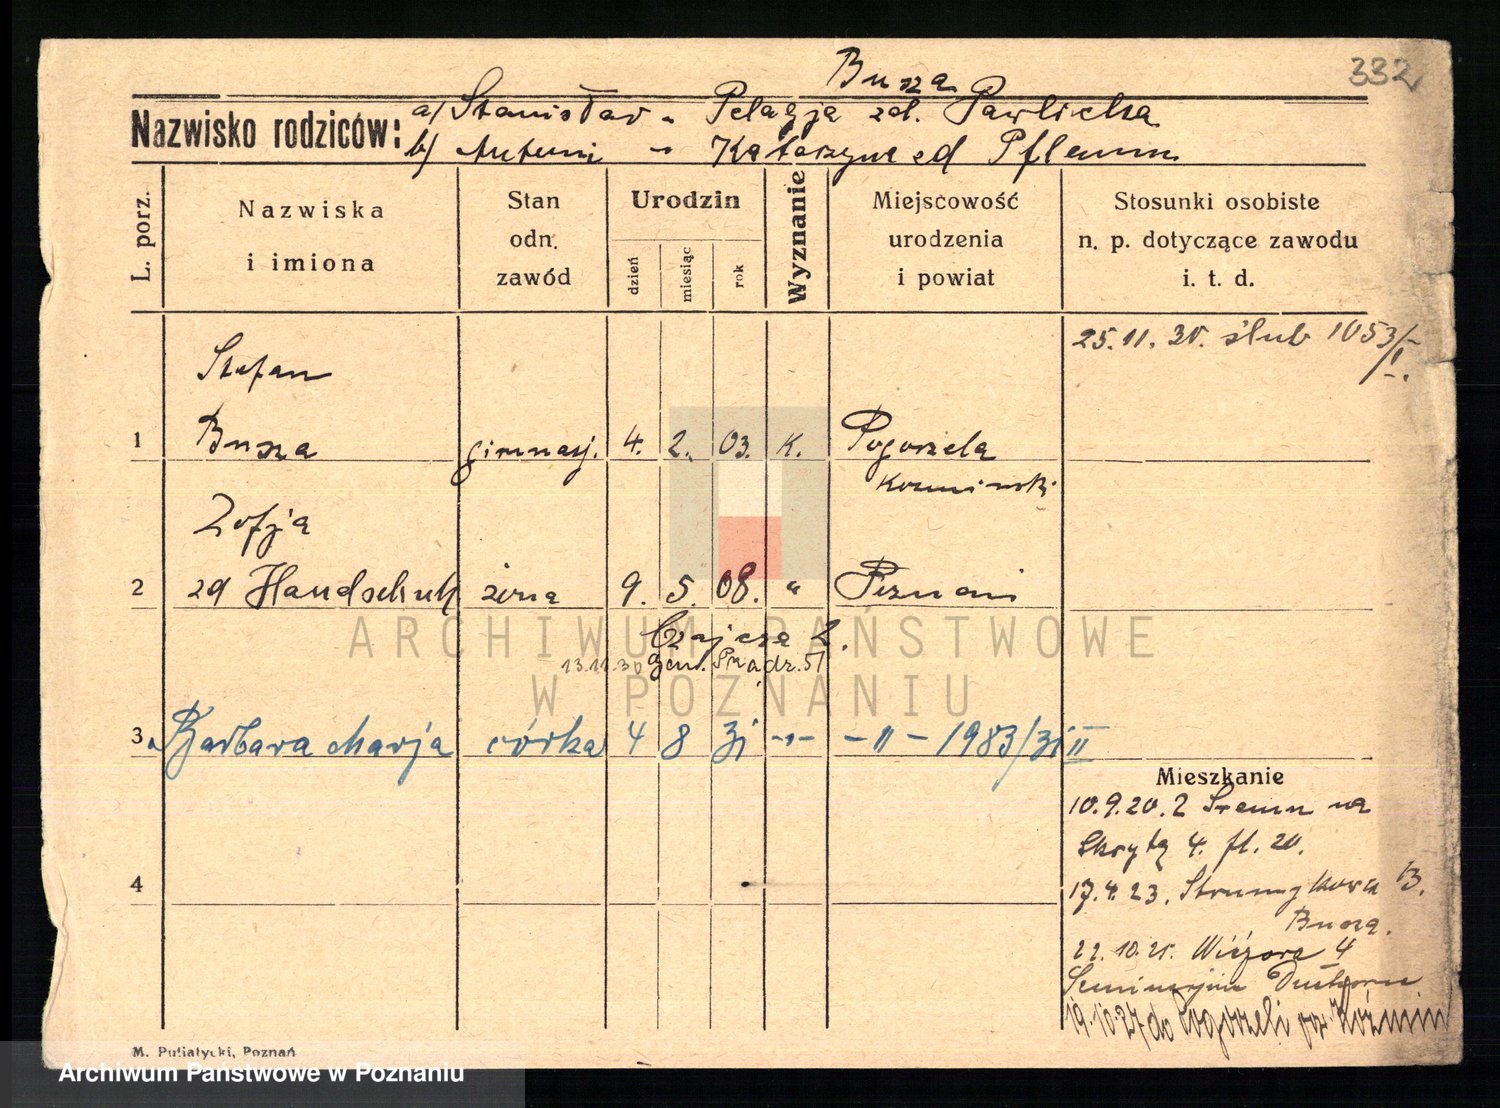 332
Busza
Nazwisko rodziców:
a) Stanisław - Pelagja zd. Pawlicka
b) Antoni - Katarzyna zd Pflaum
L. porz.
Nazwiska
i imiona
Stan
odn.
zawód
Urodzin
dzień
miesiąc
rok
Wyznanie
Miejscowość
urodzenia
i powiat
Stosunki osobiste
n. p. dotyczące zawodu
i. t. d.
25.11.30. ślub 1053/I.
Stefan
1 Busza gimnazj. 4. 2. 03. K. Pogorzela
Koźmiński
Zofja
2 zd Handschuh żona 9. 5. 08. " Poznań
13.11.30 gen. Prądz. 51
3 Barbara Marja córka 4 8 31 -"- -"- 1983/31 II
Mieszkanie
10.9.20. z Śremu na
Skrytą 4. fl. 20.
4
17.4.23. Strumykowa 13.
Busza.
22.10.25. Wieżowa 4
Seminarjum Duchowne
19.10.27 do Pogorzeli pow. Koźmin
M. Putiatycki, Poznań
ARCHIWUM PAŃSTWOWE
W POZNANIU
Archiwum Państwowe w Poznaniu